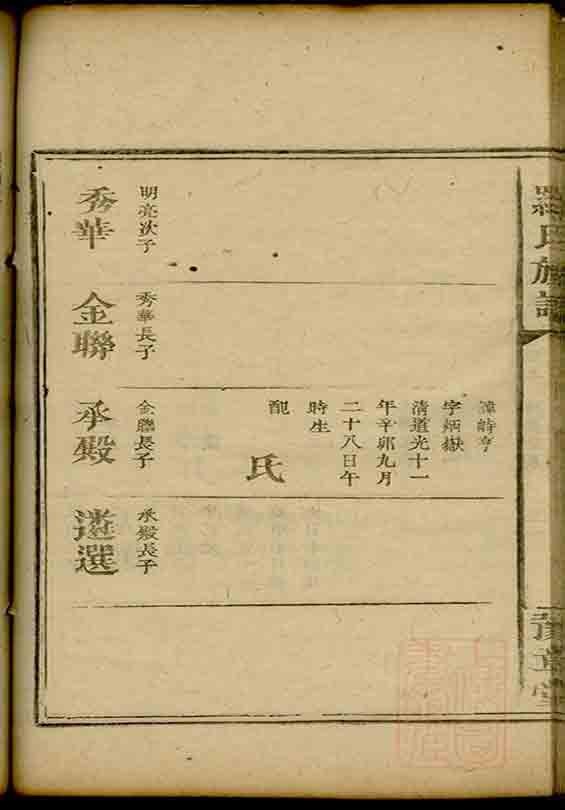 羅氏族譜
豫章堂
明亮次子
秀華
秀華長子
金聯
諱時亨
字炳嶽
清道光十一
年辛卯九月
二十八日午
時生
配 氏
金聯長子
承殿
承殿長子
遴選